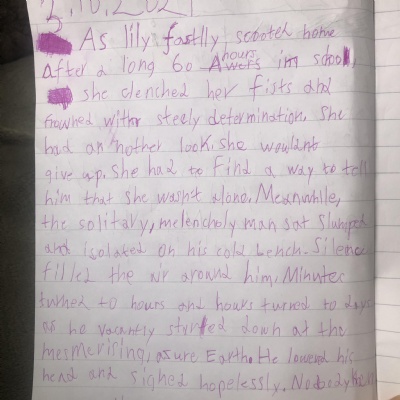 2.10.2021
As lily fastlly scooted home
After a long 60 hours in school,
she clenched her fists and
frowned with steely determination. She
had an nother look. she wouldnt
give up. She had to find a way to tell
him that she wasn't alone. Meanwhile,
the solitary, melencholy man sat slumped
and isolated on his cold bench. Silence
filled the air around him. Minutes
turned to hours and hours turned to days
as he vacantly stared down at the
mesmerising, asure Earth. He lowered his
head and sighed hopelessly. Nobody